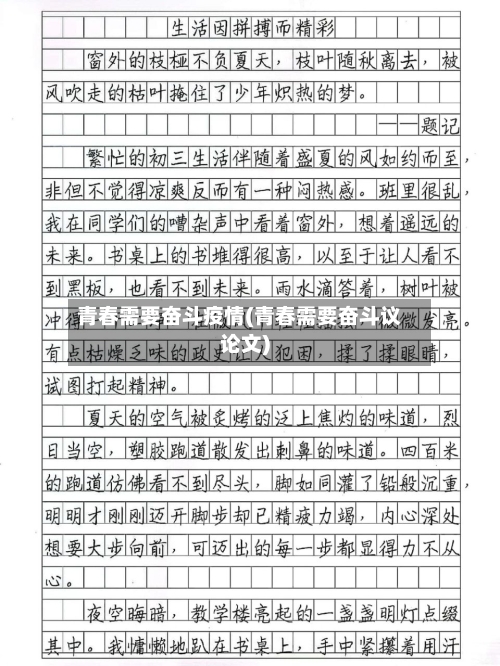 生活因拼搏而精彩
窗外的枝桠不负夏天，枝叶随秋离去，被
风吹走的枯叶掩住了少年炽热的梦。
——题记
繁忙的初三生活伴随着盛夏的风如约而至，
非但不觉得凉爽反而有一种闷热感。班里很乱，
我在同学们的嘈杂声中看着窗外，想着遥远的
未来。书桌上的书堆得很高，以至于让人看不
到黑板，也看不到未来。雨水滴答着，树叶被
冲得
微微发亮。
青春需要奋斗疫情(青春需要奋斗议
论文)
有点枯燥乏味的政史让人犯困，揉了揉眼睛，
试图打起精神。
夏天的空气被炙烤的泛上焦灼的味道，烈
日当空，塑胶跑道散发出刺鼻的味道。四百米
的跑道仿佛看不到尽头，脚如同灌了铅般沉重，
明明才刚刚迈开脚步却已精疲力竭，内心深处
想要大步向前，可迈出的每一步都显得力不从
心。
夜空晦暗，教学楼亮起的一盏盏明灯点缀
其中。我慵懒地趴在书桌上，手中紧攥着用汗